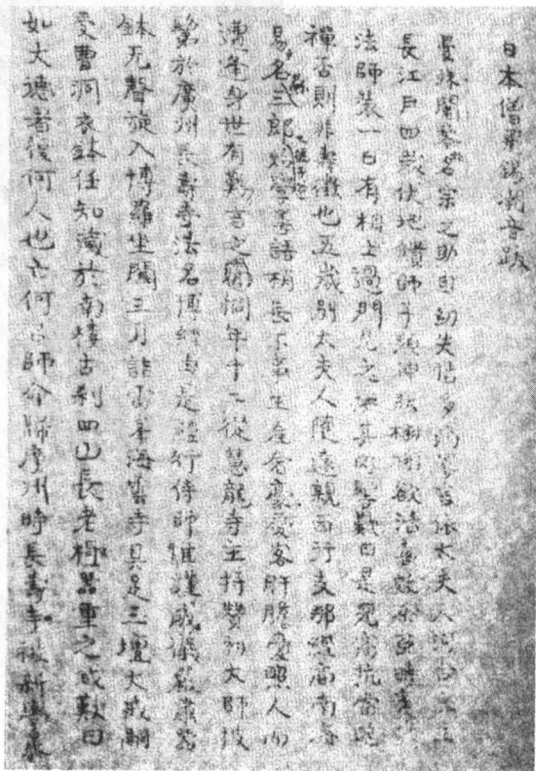 日本僧飛錫潮音跋
曼殊闍黎始名宗之助自幼失怙多病寡言依太夫人河合氏生
長江戶四歲伏地繢師子頻伸狀栩栩欲活喜效奈良時裝
法師裝一日有相士過門見之撫其肉髻歎曰是兒高抗當逃
禪否則非壽徵也五歲別太夫人隨遠親西行支那經商南海
易名蘇三郎又號子穀始學粵語稍長不事生產奢豪愛客肝膽照人而
遭逢身世有難言之恫年十二從慧龍寺主持贊初大師披
鬀於廣州長壽寺法名博經由是經行侍師惟謹威儀嚴肅器
鉢无聲旋入博羅坐關三月詣雷峯海雲寺具足三壇大戒嗣
受曹洞衣鉢任知藏於南樓古剎四山長老極器重之咸歎曰
如大德者復何人也亡何以師命歸廣州時長壽寺被新學暴